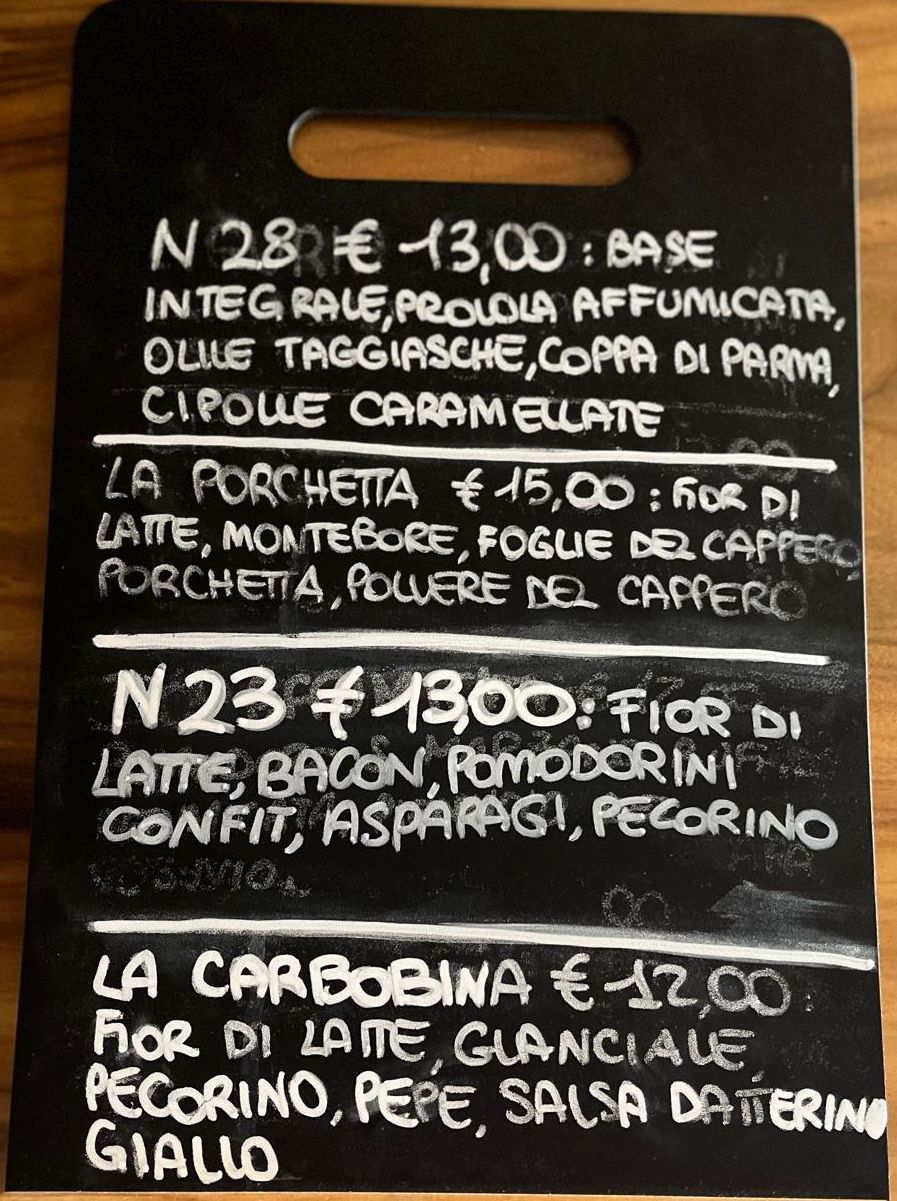 N 28 € 13,00 : BASE
INTEGRALE, PROVOLA AFFUMICATA,
OLIVE TAGGIASCHE, COPPA DI PARMA,
CIPOLLE CARAMELLATE
LA PORCHETTA € 15,00 : FIOR DI
LATTE, MONTEBORE, FOGLIE DEL CAPPERO
PORCHETTA, POLVERE DEL CAPPERO
N 23 € 13,00 : FIOR DI
LATTE, BACON, POMODORINI
CONFIT, ASPARAGI, PECORINO
LA CARBOBINA € 12,00 :
FIOR DI LATTE, GUANCIALE,
PECORINO, PEPE, SALSA DATTERINO
GIALLO